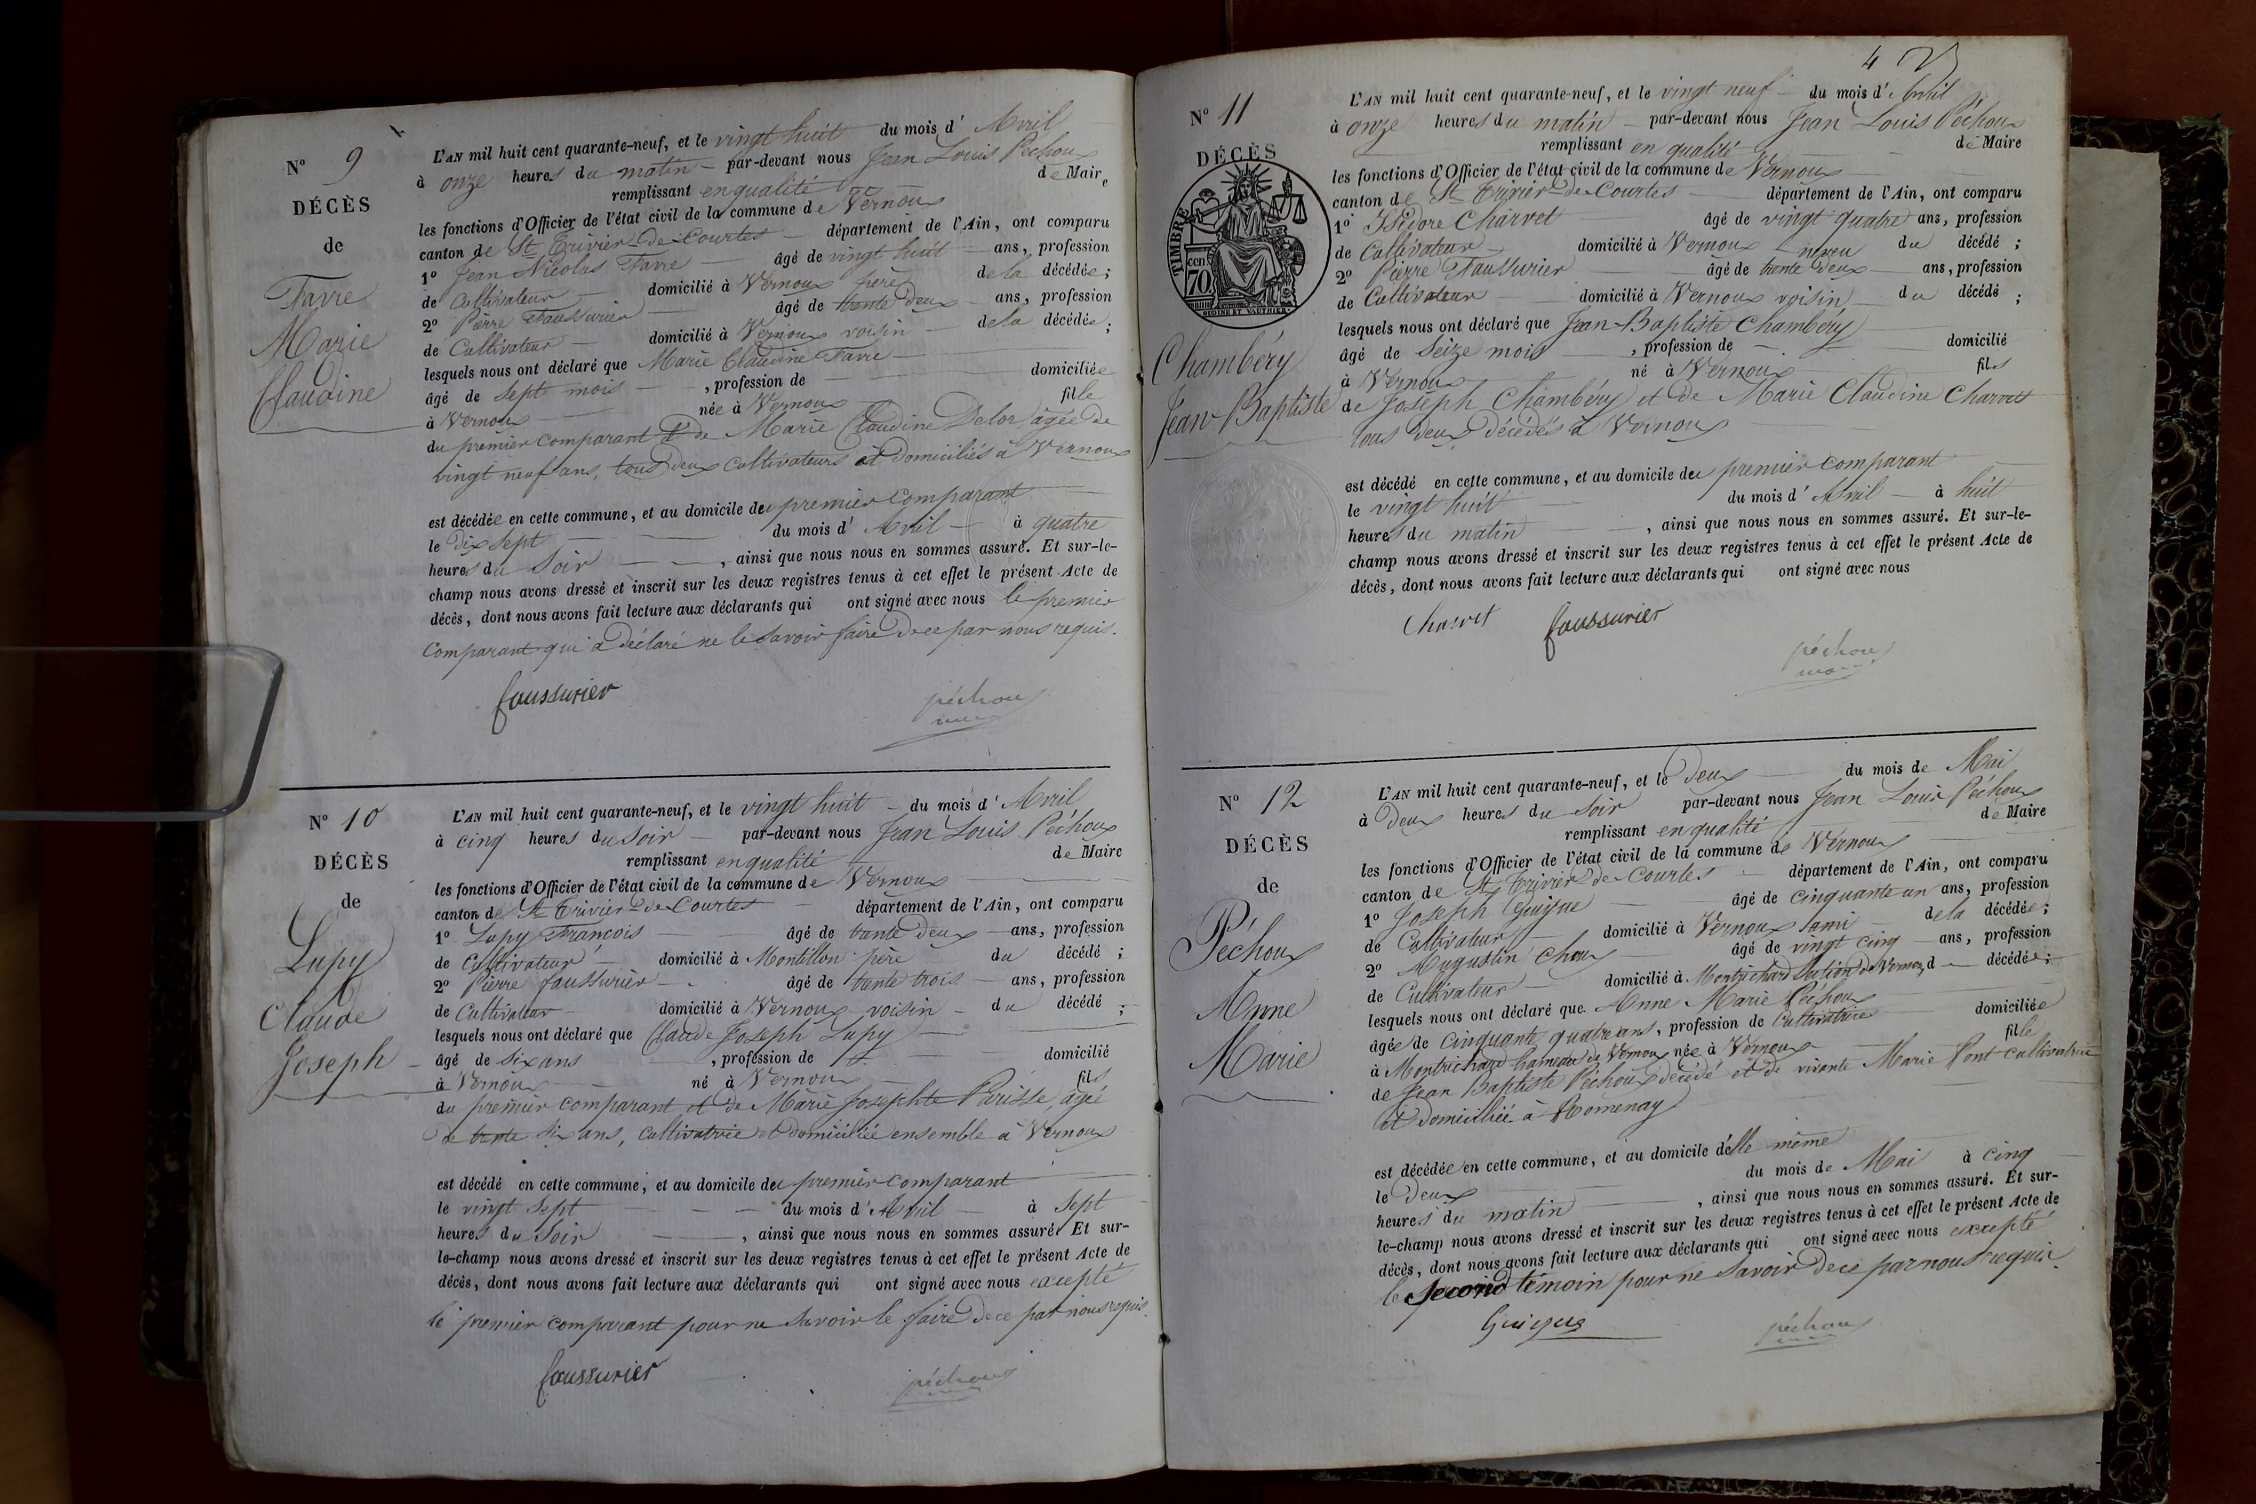 N° 9
DÉCÈS
de
Favre
Marie
Claudine
L'AN mil huit cent quarante-neuf, et le vingt huit du mois d'Avril
à onze heures du matin par-devant nous Jean Louis Péchoux
remplissant en qualité de Maire
les fonctions d'Officier de l'état civil de la commune de Vernoux
canton de St Trivier-de-Courtes département de l'Ain, ont comparu
1° Jean Nicolas Favre âgé de vingt huit ans, profession
de Cultivateur domicilié à Vernoux père de la décédée;
2° Pierre Faussurier âgé de trente deux ans, profession
de Cultivateur domicilié à Vernoux voisin de la décédée;
lesquels nous ont déclaré que Marie Claudine Favre
âgé de sept mois, profession de domiciliée
à Vernoux née à Vernoux fille
du premier comparant & de Marie Claudine Delor, âgée de
vingt neuf ans, tous deux cultivateurs et domiciliés à Vernoux
est décédée en cette commune, et au domicile du premier comparant
le dix sept du mois d'Avril à quatre
heures du soir, ainsi que nous nous en sommes assuré. Et sur-le-
champ nous avons dressé et inscrit sur les deux registres tenus à cet effet le présent Acte de
décès, dont nous avons fait lecture aux déclarants qui ont signé avec nous le premier
comparant qui a déclaré ne le savoir faire de ce par nous requis.
faussurier péchoux
maire
N° 10
DÉCÈS
de
Lupy
Claude
Joseph
L'AN mil huit cent quarante-neuf, et le vingt huit du mois d'Avril
à cinq heures du soir par-devant nous Jean Louis Péchoux
remplissant en qualité de Maire
les fonctions d'Officier de l'état civil de la commune de Vernoux
canton de St Trivier-de-Courtes département de l'Ain, ont comparu
1° Lupy François âgé de trente deux ans, profession
de Cultivateur domicilié à Montillon père du décédé;
2° Pierre faussurier âgé de trente trois ans, profession
de Cultivateur domicilié à Vernoux voisin du décédé;
lesquels nous ont déclaré que Claude Joseph Lupy
âgé de six ans, profession de domicilié
à Vernoux né à Vernoux fils
du premier comparant et de Marie Josephte Parisse, âgée
de trente six ans, cultivatrice et domiciliée ensemble à Vernoux
est décédé en cette commune, et au domicile du premier comparant
le vingt sept du mois d'Avril à sept
heures du soir, ainsi que nous nous en sommes assuré. Et sur-
le-champ nous avons dressé et inscrit sur les deux registres tenus à cet effet le présent Acte de
décès, dont nous avons fait lecture aux déclarants qui ont signé avec nous excepté
le premier comparant pour ne savoir le faire de ce par nous requis.
faussurier péchoux
4
N° 11
DÉCÈS
TIMBRE
cen
70
OUDINE ET VAUTHIER
Chambéry
Jean-Baptiste
L'AN mil huit cent quarante-neuf, et le vingt neuf du mois d'Avril
à onze heures du matin par-devant nous Jean Louis Péchoux
remplissant en qualité de Maire
les fonctions d'Officier de l'état civil de la commune de Vernoux
canton de St Trivier-de-Courtes département de l'Ain, ont comparu
1° Isidore Charvet âgé de vingt quatre ans, profession
de Cultivateur domicilié à Vernoux neveu du décédé;
2° Pierre Faussurier âgé de trente deux ans, profession
de Cultivateur domicilié à Vernoux voisin du décédé;
lesquels nous ont déclaré que Jean-Baptiste Chambéry
âgé de seize mois, profession de domicilié
à Vernoux né à Vernoux fils
de Joseph Chambéry et de Marie Claudine Charvet
tous deux décédés à Vernoux
est décédé en cette commune, et au domicile du premier comparant
le vingt huit du mois d'Avril à huit
heures du matin, ainsi que nous nous en sommes assuré. Et sur-le-
champ nous avons dressé et inscrit sur les deux registres tenus à cet effet le présent Acte de
décès, dont nous avons fait lecture aux déclarants qui ont signé avec nous
Charvet faussurier
péchoux
maire
N° 12
DÉCÈS
de
Péchoux
Anne
Marie
L'AN mil huit cent quarante-neuf, et le deux du mois de Mai
à deux heures du soir par-devant nous Jean Louis Péchoux
remplissant en qualité de Maire
les fonctions d'Officier de l'état civil de la commune de Vernoux
canton de St Trivier-de-Courtes département de l'Ain, ont comparu
1° Joseph Guigue âgé de cinquante un ans, profession
de Cultivateur domicilié à Vernoux l'ami de la décédée;
2° Augustin Choux âgé de vingt cinq ans, profession
de Cultivateur domicilié à Montrichard section de Vernoux d décédée;
lesquels nous ont déclaré que Anne Marie Péchoux
âgée de cinquante quatre ans, profession de Cultivatrice domiciliée
à Montrichard hameau de Vernoux née à Vernoux fille
de Jean Baptiste Péchoux décédé et de vivante Marie Pont cultivatrice
et domiciliée à Romenay
est décédée en cette commune, et au domicile d'elle même
le deux du mois de Mai à cinq
heures du matin, ainsi que nous nous en sommes assuré. Et sur-
le-champ nous avons dressé et inscrit sur les deux registres tenus à cet effet le présent Acte de
décès, dont nous avons fait lecture aux déclarants qui ont signé avec nous excepté
le second témoin pour ne savoir de ce par nous requis.
Guigue péchoux